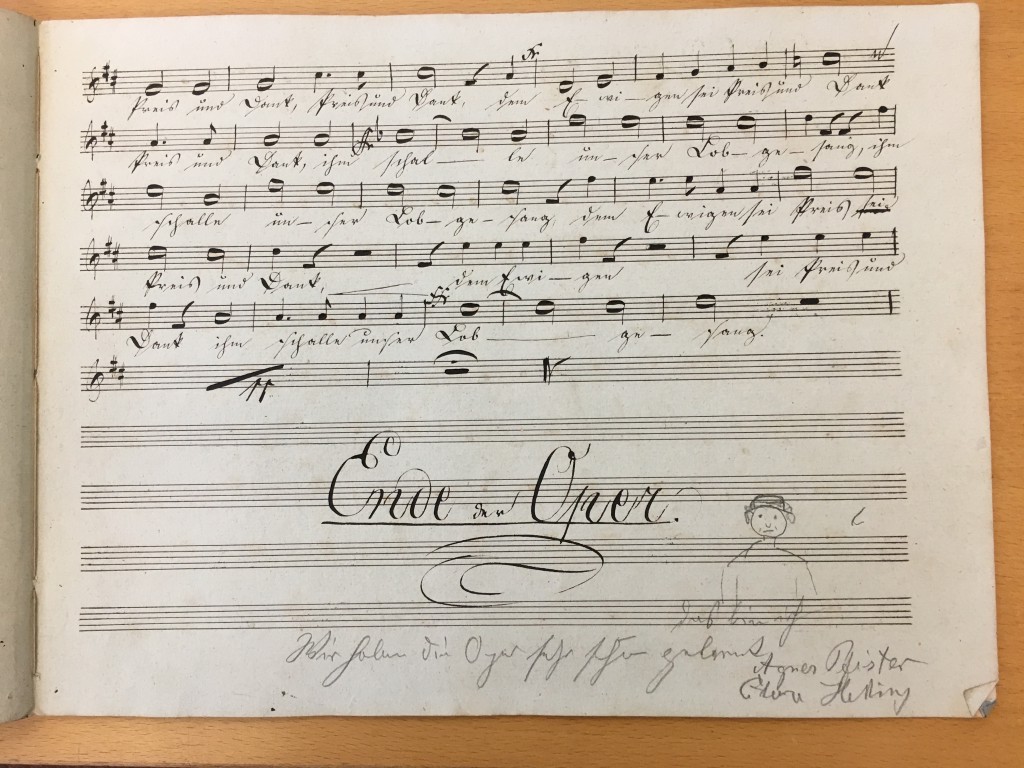 Preis und Dank, Preis und Dank, dem E–wi–gen sei Preis und Dank
Preis und Dank, ihm schal–le un–ser Lob–ge–sang, ihm
schalle un–ser Lob–ge–sang, dem E–wigen sei Preis sei
Preis und Dank, dem Ewi–gen sei Preis und
Dank ihm schalle unser Lob–ge–sang.
Ende der Oper.
das bin ich
Wir haben die Oper sehr schön gelernt
Agnes